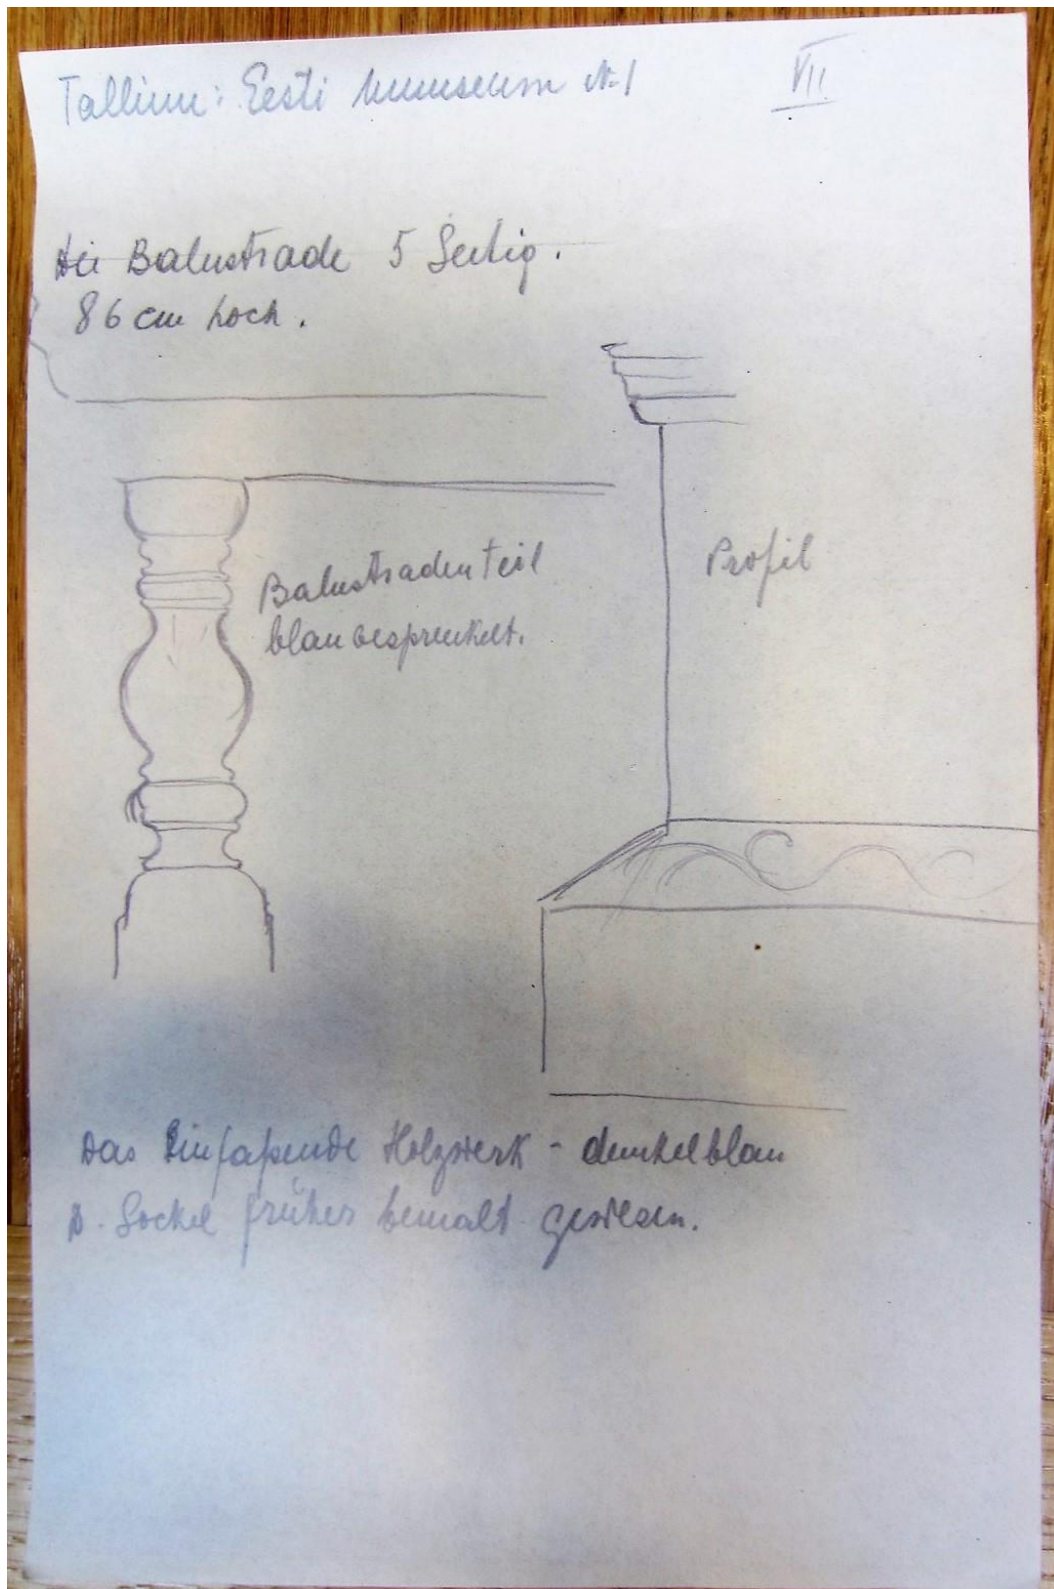 Tallinn: Eesti Museum N.1
VII.
Die Balustrade 5 Seitig.
86 cm hoch.
Balustradenteil
blau besprenkelt.
Profil
Das Einfaßende Holzwerk - dunkelblau
D. Sockel früher bemalt gewesen.